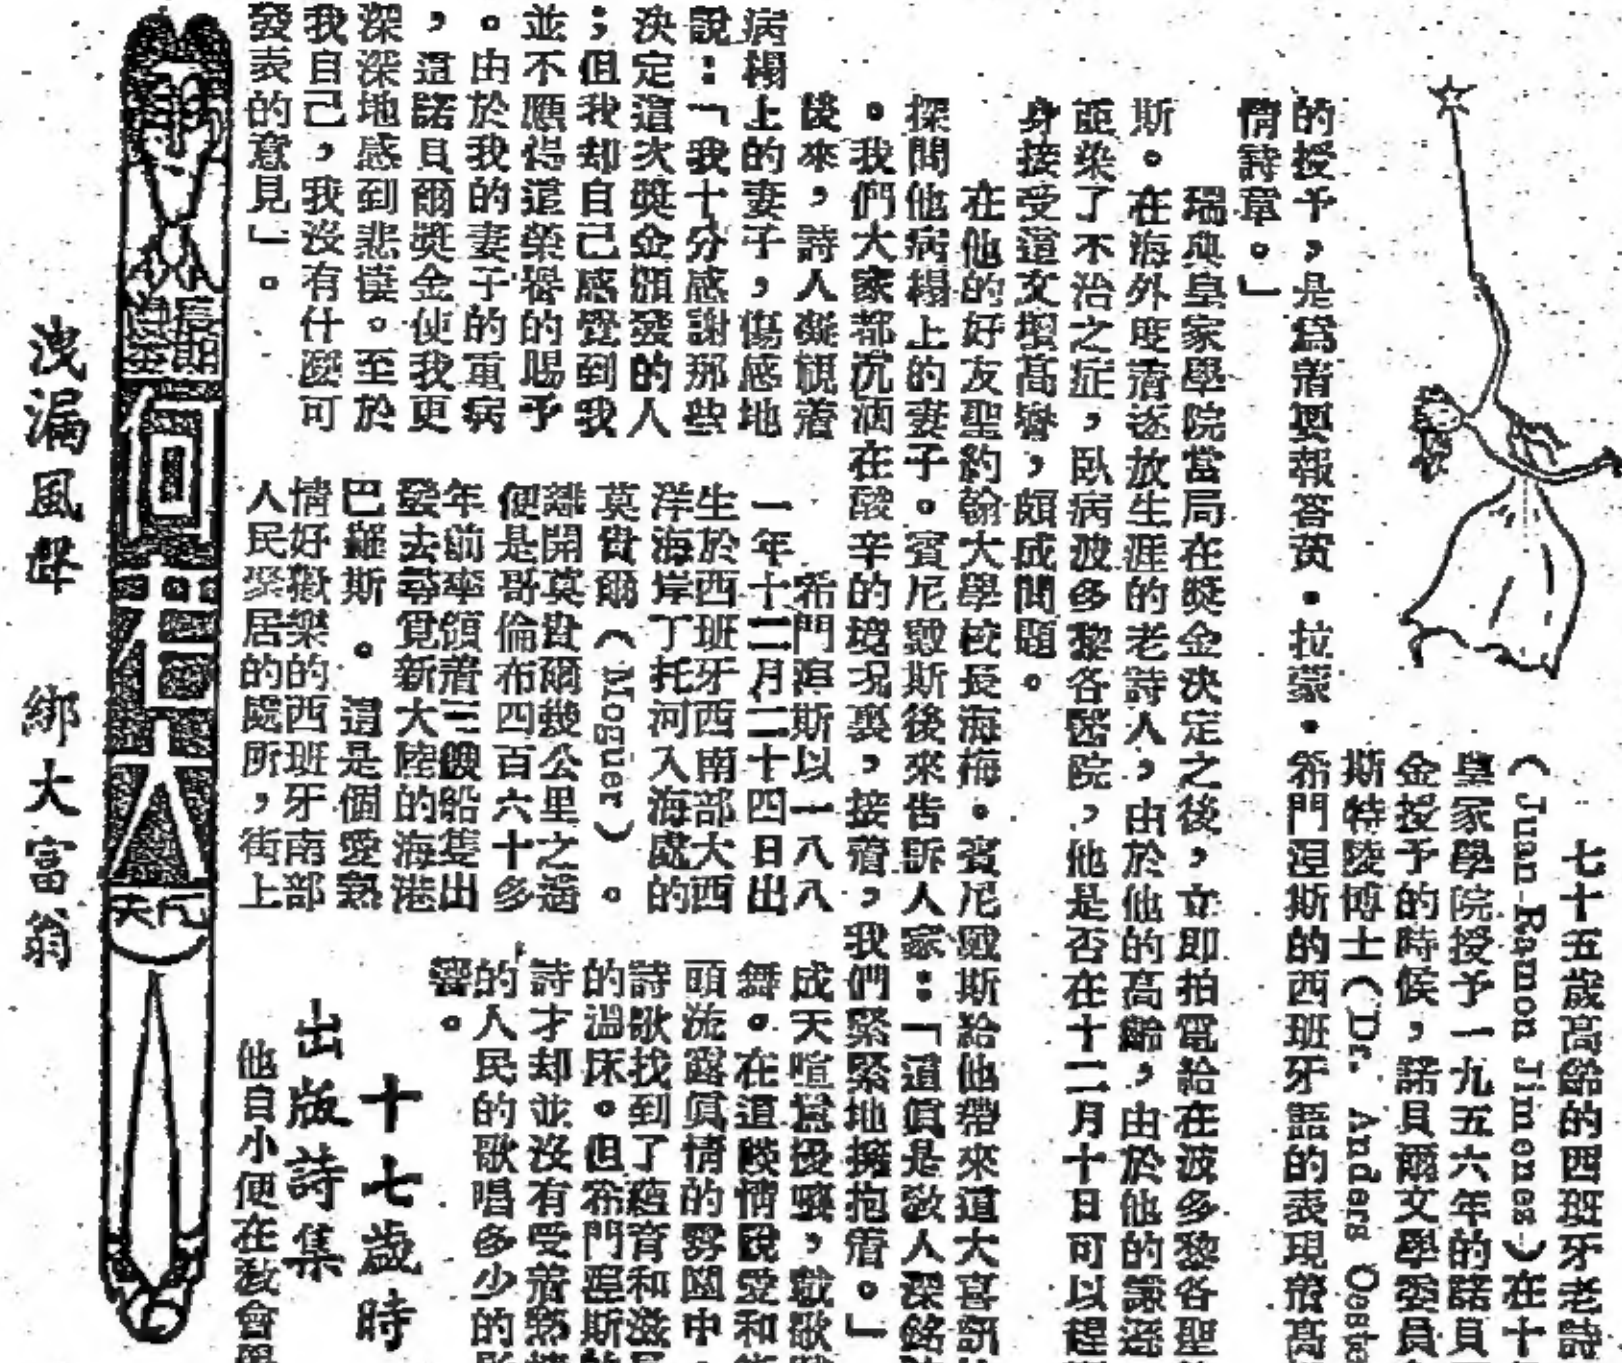 七十五歲高齡的西班牙老詩
(Juan Ramon Jimenes)在十
皇家學院授予一九五六年的諾貝
金授予的時候，諾貝爾文學委員
斯特陵博士(Dr. Anders Oeste
希門涅斯的西班牙語的表現着高
的授予，是爲着要報答黃・拉蒙・
情詩章。」
瑞典皇家學院當局在獎金決定之後，立即拍電給在波多黎各聖
斯。在海外度着逐放生涯的老詩人，由於他的高齡，由於他的謙遜
並染了不治之症，臥病波多黎各醫院，他是否在十二月十日可以趕
身接受這文壇高譽，頗成問題。
在他的好友聖約翰大學校長海梅。賓尼戴斯給他帶來這大喜訊
探問他病榻上的妻子。賓尼戴斯後來告訴人家：「這眞是教人深銘
。我們大家都沉湎在酸辛的境况裏，接着，我們緊緊地擁抱着。」
後來，詩人凝視着
病榻上的妻子，傷感地
說：「我十分感謝那些
決定這次獎金頒發的人
；但我却自己感覺到我
並不應得這榮譽的賜予
。由於我的妻子的重病
，這諾貝爾獎金使我更
深深地感到悲悽。至於
我自己，我沒有什麼可
發表的意見」。
希門涅斯以一八八
一年十二月二十四日出
生於西班牙西南部大西
洋海岸丁托河入海處的
莫貴爾(Moguer)。
離開莫貴爾幾公里之遙
便是哥倫布四百六十多
年前率領着三艘船隻出
發去尋覓新大陸的海港
巴羅斯。這是個愛熱
情好歡樂的西班牙南部
人民聚居的處所，街上
成天喧嚷，歌
舞。在這談情說愛和
頭流露眞情的雰圍中
詩歌找到了蘊育和滋
的溫床。但希門涅斯
詩才却並沒有受着
的人民的歌唱多少的
響。
十七歲時
出版詩集
他自小便在教會
何大
洩漏風聲 綁大富翁